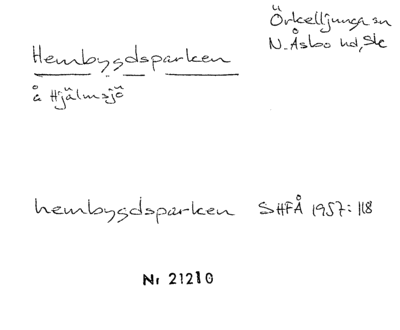 Örkelljunga sn
N. Åsbo hd, Sk
Hembygdsparken
å Hjälmsjö
hembygdsparken SHFÅ 1957: 118
Nr 21210